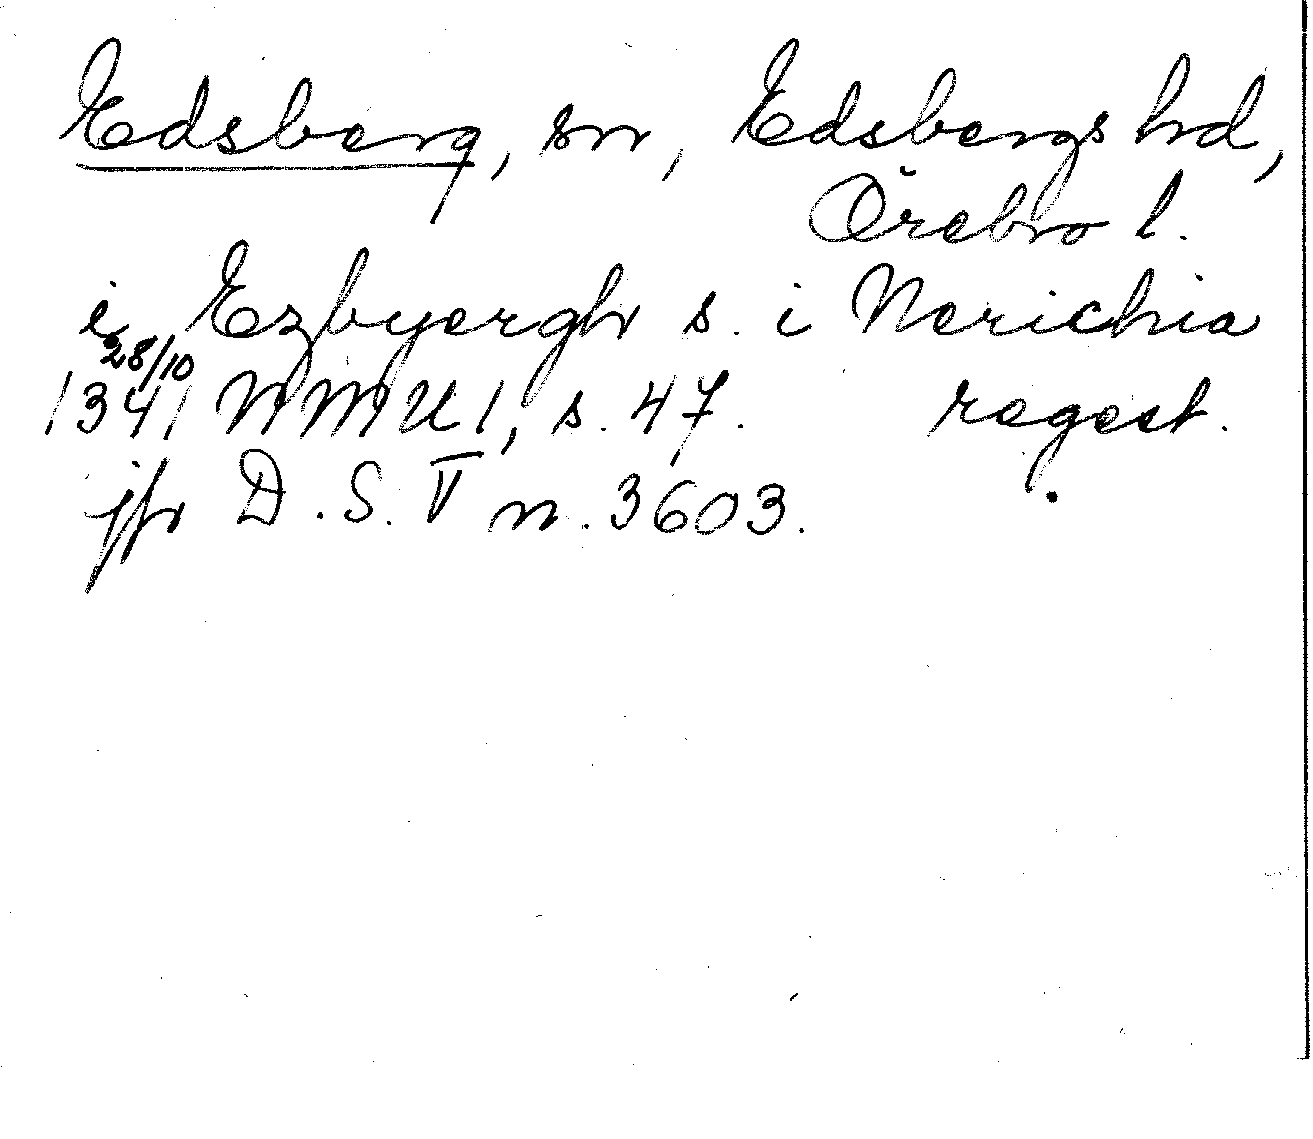 Edsberg, sn, Edsbergs hrd,
Örebro l.
i Ezbyergh s. i Nerichia
28/10
1341 NMU 1, s. 47. regest.
jfr D.S. V n. 3603.